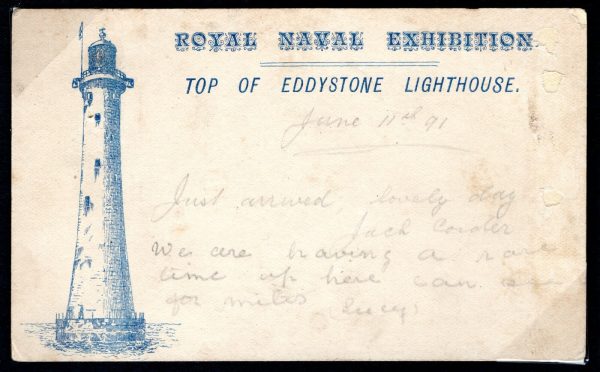 ROYAL NAVAL EXHIBITION
TOP OF EDDYSTONE LIGHTHOUSE.
June 11th 91
Just arrived lovely day
Jack Corder
We are having a rare
time up here can see
for miles (Lucy)